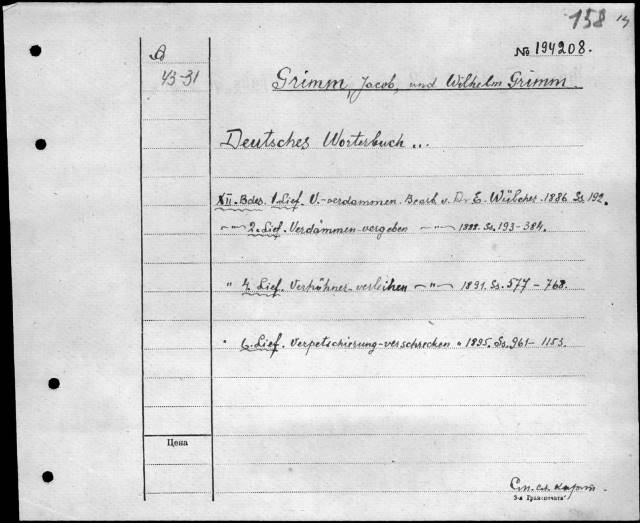 158
№ 194208.
А
43-31
Grimm, Jacob, und Wilhelm Grimm.
Deutsches Wörterbuch...
XII. Bdes. 1. Lief. V.-verdammen. Bearb. v. Dr E. Wülcher. 1886 Ss. 192.
" " 2. Lief. Verdammen-vergeben " 1888. Ss. 193-384.
" 4. Lief. Verhöhner-verleihen " 1891. Ss. 577-768.
" 6. Lief. Verpetschierung-verschrecken " 1895. Ss. 961-1153.
Цена
См. сл. карт.
3-я Гранпечать